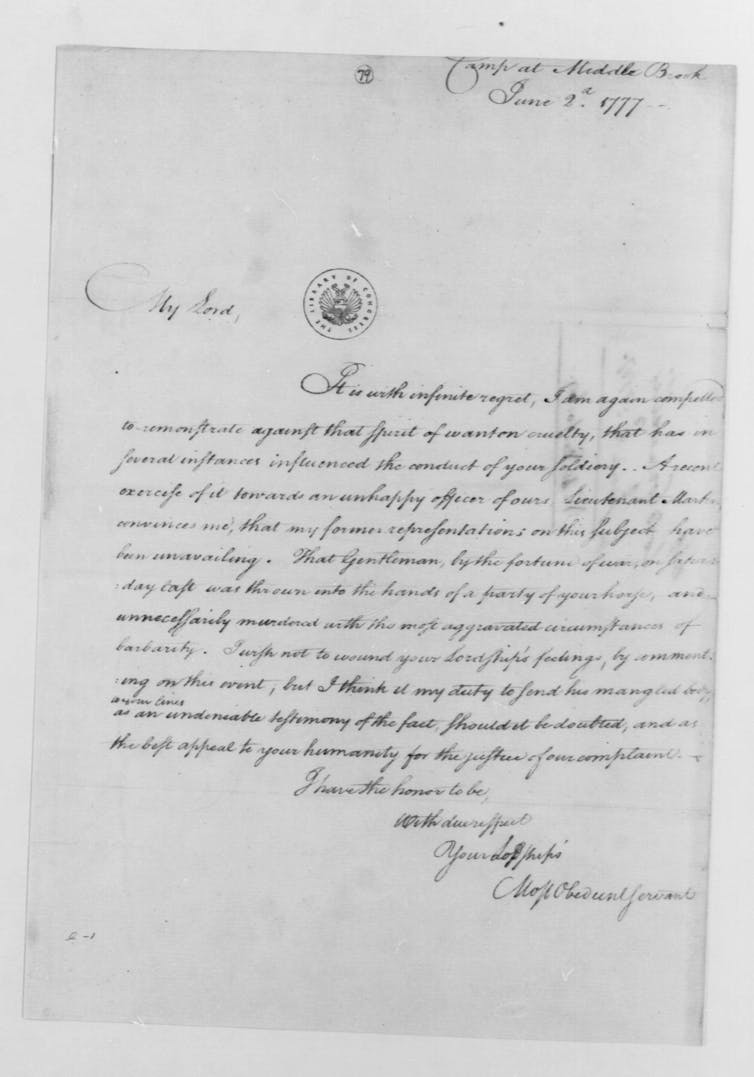 79
Camp at Middle Brook
June 2d. 1777 --
My Lord,
THE LIBRARY OF CONGRESS
It is with infinite regret, I am again compelled
to remonstrate against that spirit of wanton cruelty, that has in
several instances influenced the conduct of your soldiery. A recent
exercise of it towards an unhappy officer of ours, Lieutenant Martin,
convinces me, that my former representations on this subject have
been unavailing. That Gentleman, by the fortune of war, on satur-
:day last was thrown into the hands of a party of your horse, and
unnecessarily murdered with the most aggravated circumstances of
barbarity. I wish not to wound your Lordship's feelings, by comment:
:ing on this event; but I think it my duty to send his mangled body
to your lines
as an undeniable testimony of the fact, should it be doubted, and as
the best appeal to your humanity for the justice of our complaint. -
I have the honor to be,
With due respect
Your Lordship's
Most Obedient Servant